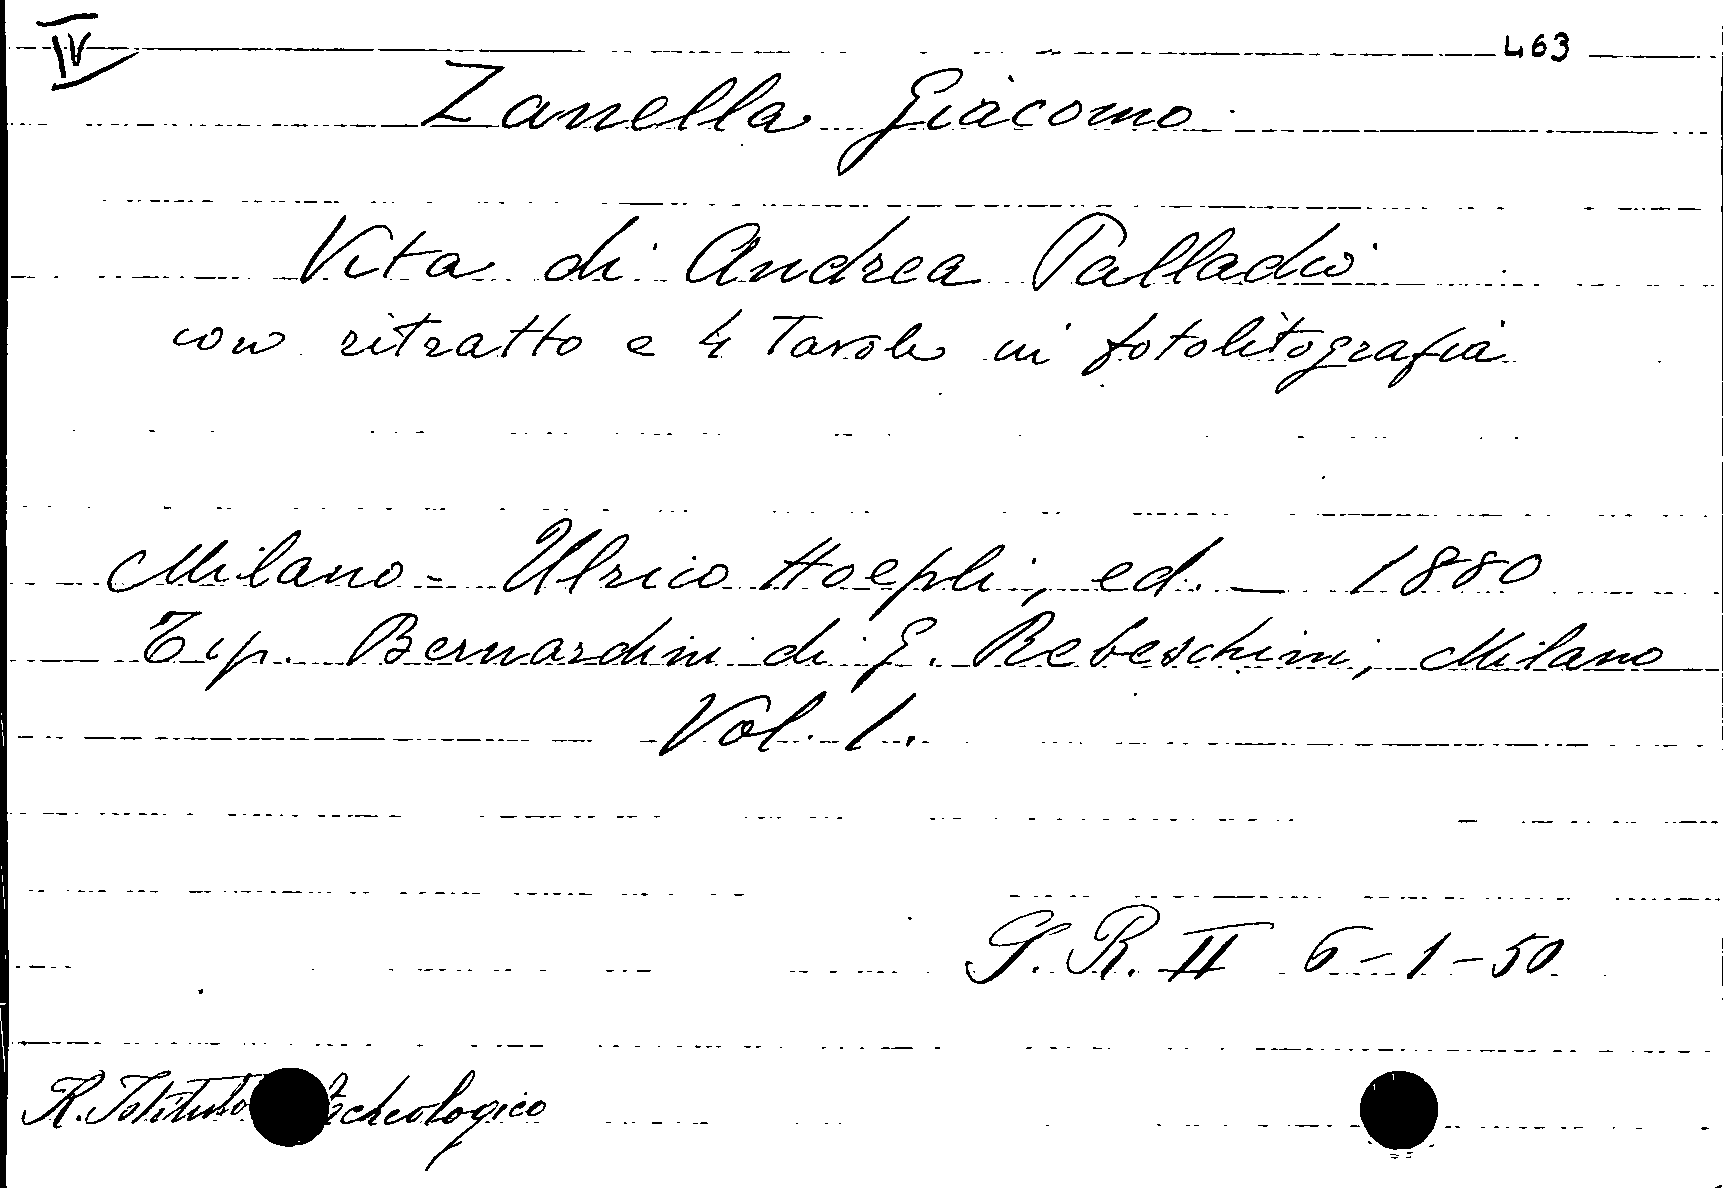 IV 463
Zanella Giacomo
Vita di Andrea Palladio
con ritratto e 4 Tavole in fotolitografia
Milano - Ulrico Hoepli, ed. - 1880
Tip. Bernardini di G. Rebeschini, Milano
Vol. 1.
S. R. II 6-1-50
R. Istituto Archeologico